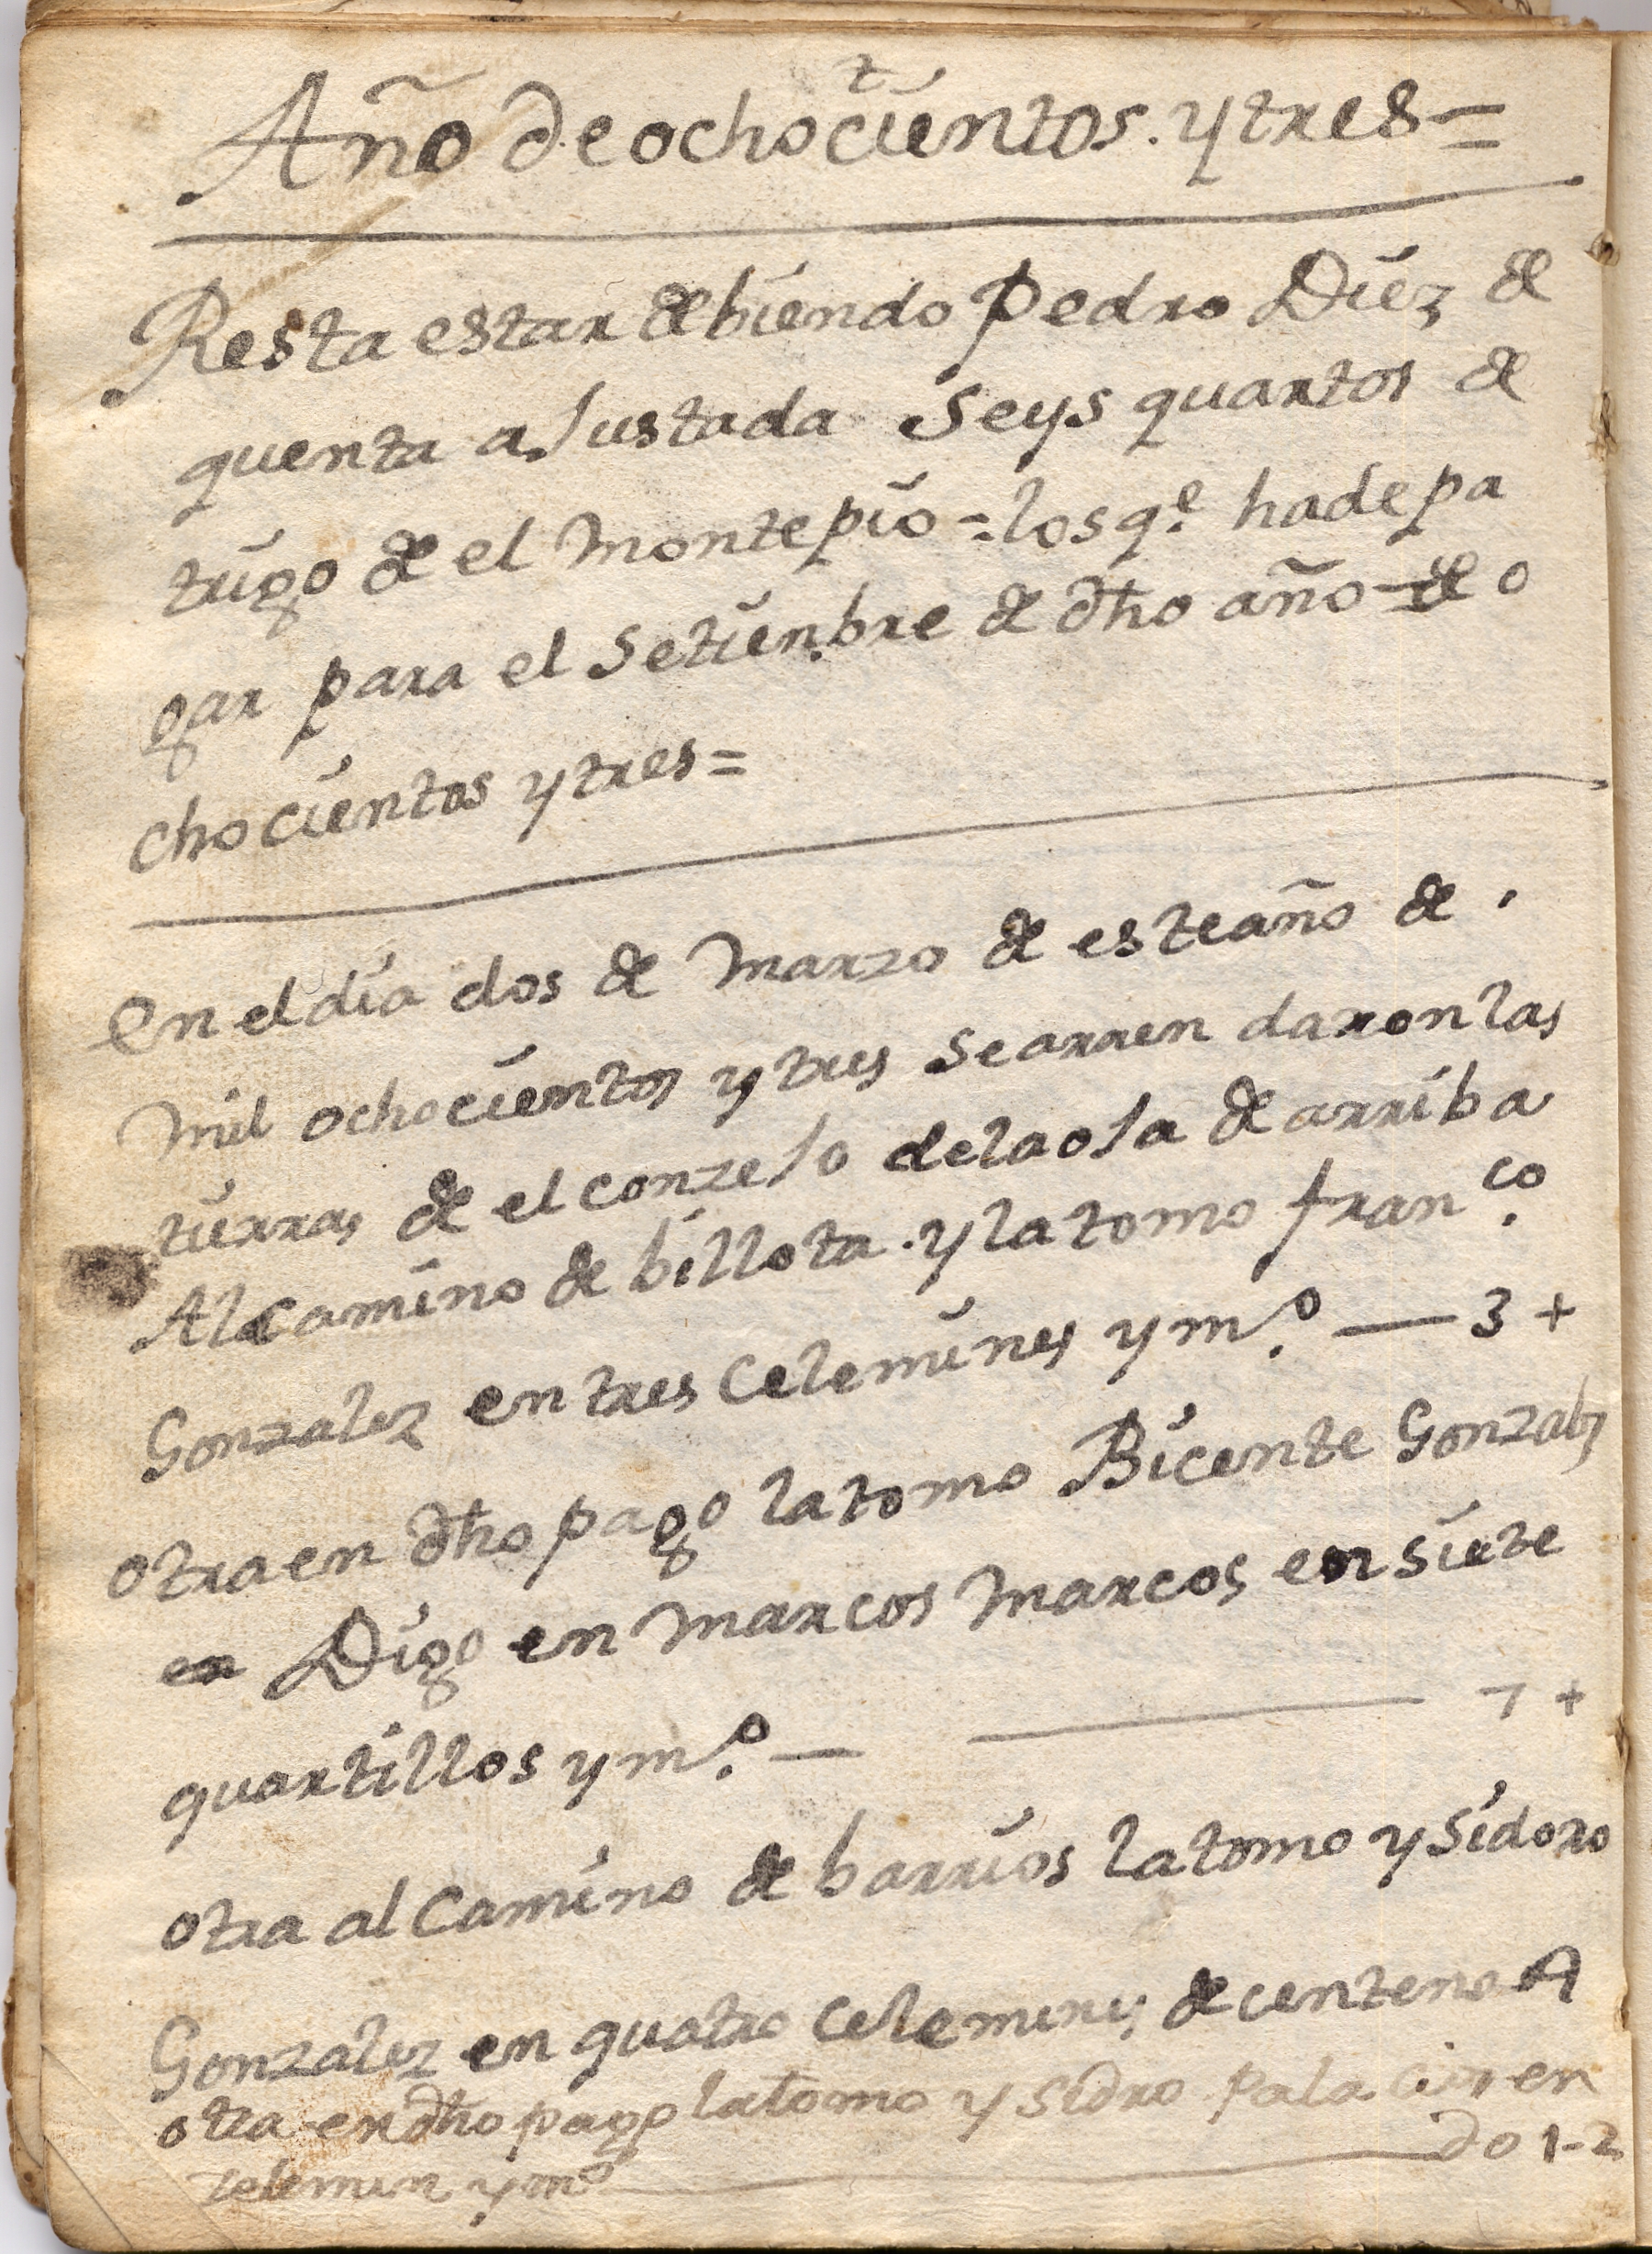 Año de ochocientos. y tres =
Resta estar debiendo Pedro Diez de
quenta aJustada Seys quartos de
trigo de el Montepio = los q.e ha de pa
gar para el Setienbre de dho año de o
chocientos y tres =
En el dia dos de Marzo de este año de
Mil ochocientos y tres se arren daron las
tierras de el conzeJo de la oJa de arriba
Al camino de billota. y la tomo fran.co
Gonzalez en tres Celemines y m.o — 3 +
otra en dho pago la tomo Bicente Gonzalz
en Digo en Marcos Marcos en siete
quartillos y m.o — — 7 +
otra al Camino de barrios la tomo ysidoro
Gonzalez en quatro Celemines de centeno
otra en dho pago la tomo ysidro palacios en
zelemin y m.o — do 1-2